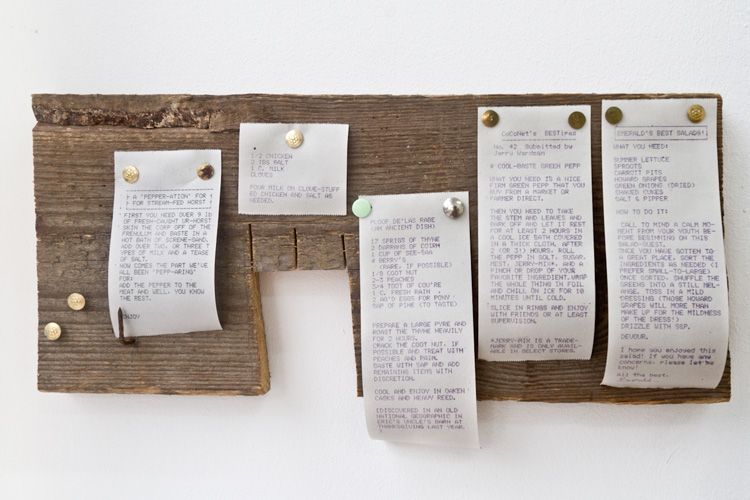 A "PEPPER-ATION" FOR
FOR STREAM-FED HORST
FIRST YOU NEED OVER 9 lb
OF FRESH-CAUGHT UR-HORST.
SKIN THE CORP OFF OF THE
FRENULUM AND BASTE IN A
HOT BATH OF SCREME-SAND.
ADD OVER TWO, OR THREE T
YPES OF MILK AND A TEASE
OF SALT.
NOW COMES THE PART WE'VE
ALL BEEN 'PEPP-ARING'
FOR:
ADD THE PEPPER TO THE
MEAT AND WELL, YOU KNOW
THE REST.
ENJOY
1/2 CHICKEN
2 TBS SALT
1 C. MILK
CLOVES
POUR MILK ON CLOVE-STUFF
ED CHICKEN AND SALT AS
NEEDED.
PLOOF DE'LAS RABE
(AN ANCIENT DISH)
17 SPRIGS OF THYME
2 DARRAHS OF
1 CUP OF SEE-SAA
4 BERRY'S
(RARE, IF POSSIBLE)
1/8 COOT NUT
2-3 PEACHES
3/4 TOOT OF COU'RE
1 C. FRESH RAIN
2 EGGS FOR PONY
SAP OF PINE (TO TASTE)
PREPARE A LARGE PYRE AND
ROAST THE THYME HEAVILY
FOR 2 HOURS.
CRACK THE COOT NUT, IF
POSSIBLE AND TREAT WITH
PEACHES AND PAIN.
BASTE WITH SAP AND ADD
REMAINING ITEMS WITH
DISCRETION.
COOL AND ENJOY IN OAKEN
CASKS AND HEAVY REED.
(DISCOVERED IN AN OLD
NATIONAL GEOGRAPHIC IN
ERIC'S UNCLE'S BARN AT
THANKSGIVING LAST YEAR.
CoCoNet's BEST!
No. 42 Submitted by
Jerry Wardman
A COOL-BASTE GREEN PEPP
WHAT YOU NEED IS A NICE
FIRM GREEN PEPP THAT YOU
BUY FROM A MARKET OR
FARMER DIRECT.
THEN YOU NEED TO TAKE
THE STEM AND LEAVES AND
BARK OFF AND LET IT REST
FOR AT LEAST 2 HOURS IN
A COOL ICE BATH COVERED
IN A THICK CLOTH. AFTER
2 (OR 3!) HOURS, ROLL
THE PEPP IN SOLT, SUGAR,
MOST JERRY-MIX*, AND A
PINCH OR DROP OF YOUR
FAVORITE INGREDIENT. WRAP
THE WHOLE THING IN FOIL
AND CHILL ON ICE FOR 10
MINUTES UNTIL COLD.
SLICE IN RINGS AND ENJOY
WITH FRIENDS OR AT LEAST
SUPERVISION.
*JERRY-MIX IS A TRADE-
MARK AND IS ONLY AVAIL-
ABLE IN SELECT STORES.
EMERALD'S BEST SALADS!
WHAT YOU NEED:
SUMMER LETTUCE
SPROOTS
CARROTT PITS
HOWARD GRAPES
GREEN ONIONS (DRIED)
SHAVED CUKES
SALT & PIPPER
HOW TO DO IT:
CALL TO MIND A CALM MO-
MENT FROM YOUR YOUTH BE-
FORE BEGINNING ON THIS
SALAD-QUEST.
ONCE YOU HAVE GOTTEN TO
A GREAT PLACE, SORT THE
INGREDIENTS AS NEEDED (I
PREFER SMALL-TO-LARGE)
ONCE SORTED, SHUFFLE THE
GREENS INTO A STILL MEL-
ANGE. TOSS IN A MILD
DRESSING (THOSE HOWARD
GRAPES WILL MORE THAN
MAKE UP FOR THE MILDNESS
OF THE DRESS!)
DRIZZLE WITH SEP.
DEVOUR.
I hope you enjoyed this
salad! If you have any
concerns, please let me
know!
All the best,